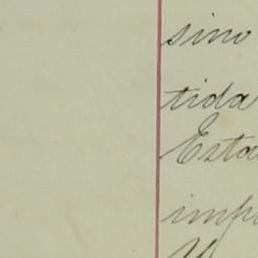 sino
tida
Esta
impo